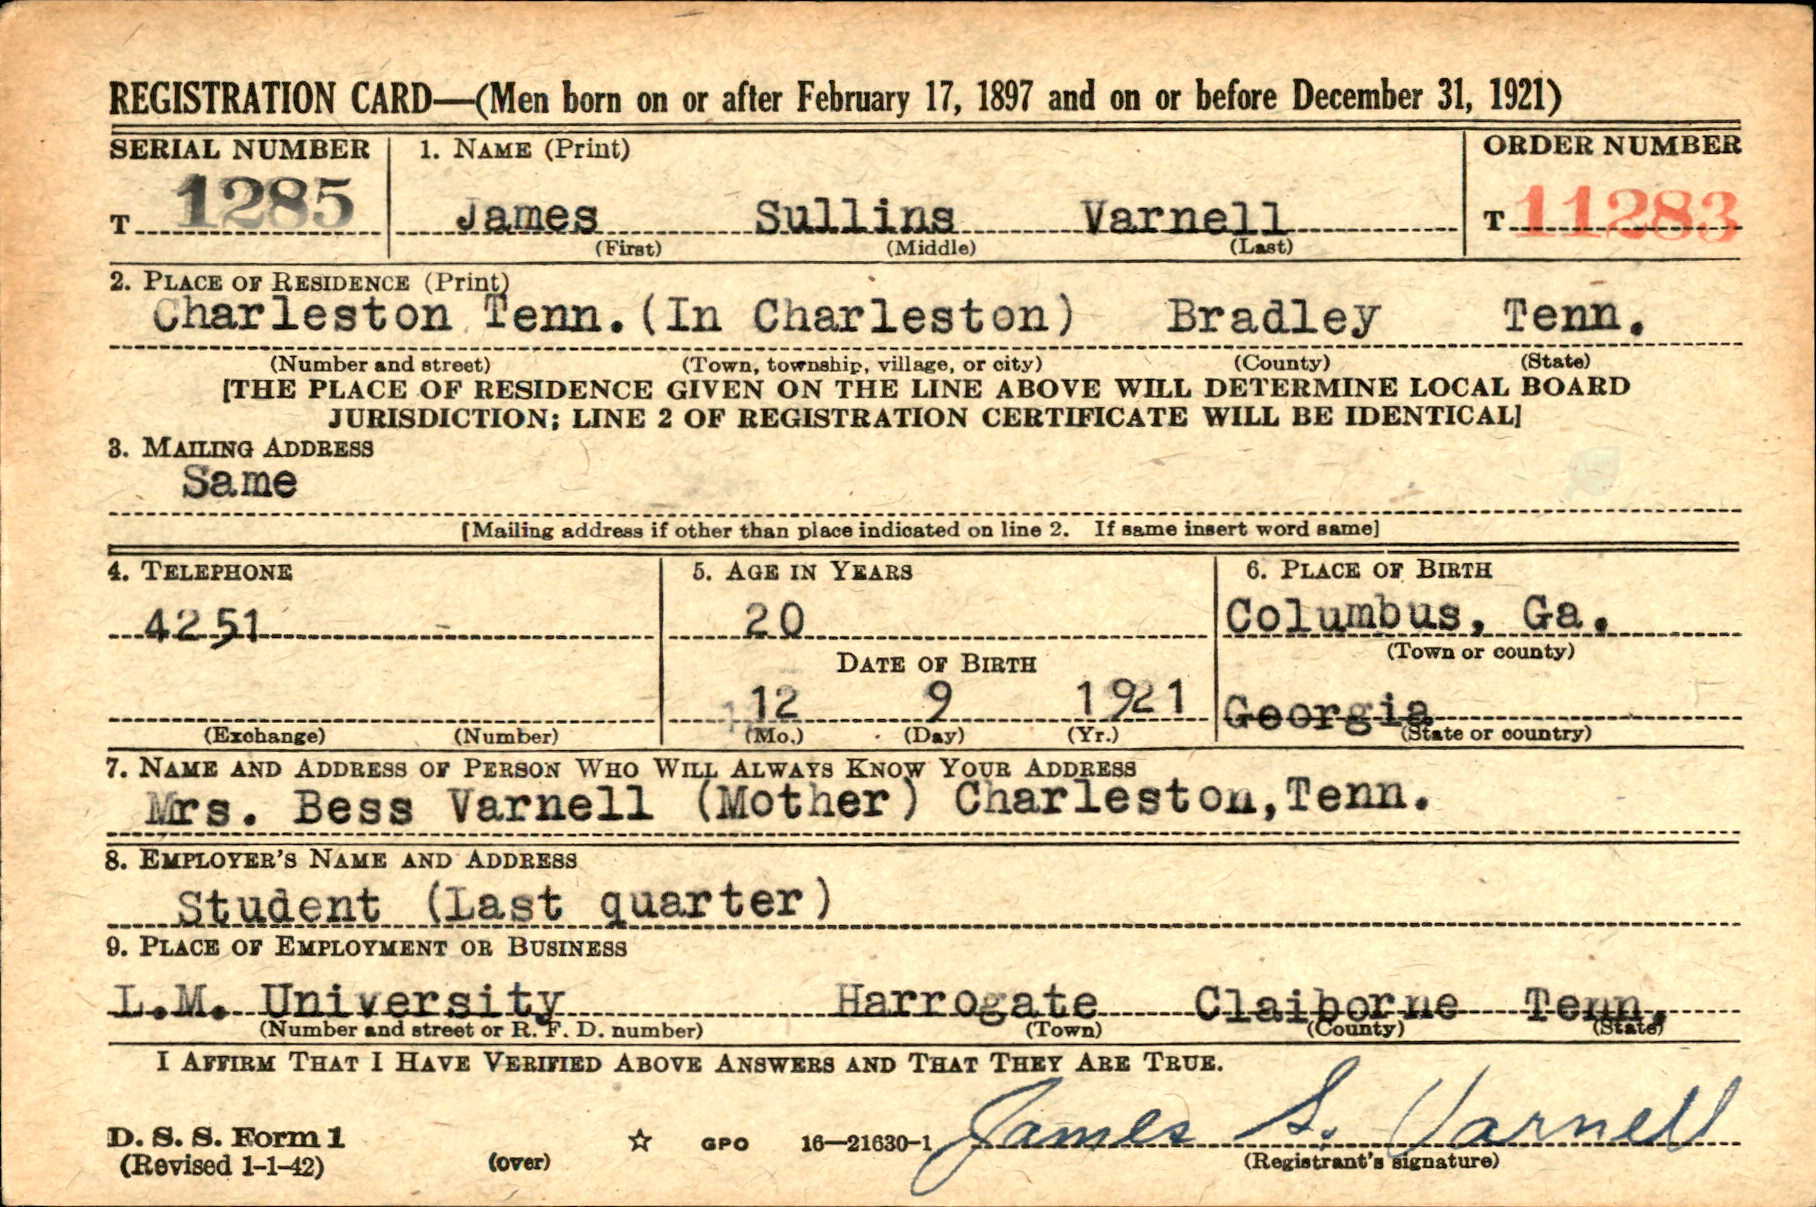 REGISTRATION CARD—(Men born on or after February 17, 1897 and on or before December 31, 1921)
SERIAL NUMBER 1. NAME (Print) ORDER NUMBER
T 1285 James Sullins Varnell T 11283
(First) (Middle) (Last)
2. PLACE OF RESIDENCE (Print)
Charleston Tenn. (In Charleston) Bradley Tenn.
(Number and street) (Town, township, village, or city) (County) (State)
[THE PLACE OF RESIDENCE GIVEN ON THE LINE ABOVE WILL DETERMINE LOCAL BOARD
JURISDICTION; LINE 2 OF REGISTRATION CERTIFICATE WILL BE IDENTICAL]
3. MAILING ADDRESS
Same
[Mailing address if other than place indicated on line 2. If same insert word same]
4. TELEPHONE 5. AGE IN YEARS 6. PLACE OF BIRTH
4251 20 Columbus, Ga.
DATE OF BIRTH (Town or county)
12 9 1921 Georgia
(Exchange) (Number) (Mo.) (Day) (Yr.) (State or country)
7. NAME AND ADDRESS OF PERSON WHO WILL ALWAYS KNOW YOUR ADDRESS
Mrs. Bess Varnell (Mother) Charleston, Tenn.
8. EMPLOYER'S NAME AND ADDRESS
Student (Last quarter)
9. PLACE OF EMPLOYMENT OR BUSINESS
L.M. University Harrogate Claiborne Tenn.
(Number and street or R. F. D. number) (Town) (County) (State)
I AFFIRM THAT I HAVE VERIFIED ABOVE ANSWERS AND THAT THEY ARE TRUE.
James S. Varnell
D. S. S. Form 1
(Revised 1-1-42) (over) ☆ GPO 16—21630-1 (Registrant's signature)